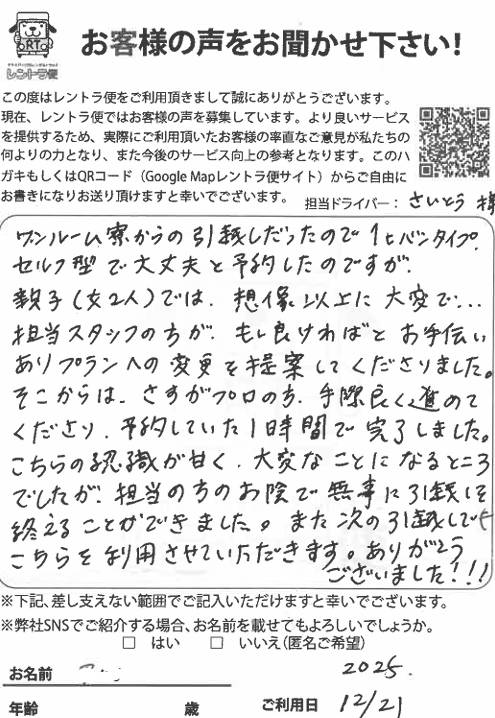 RT
レントラ便
お客様の声をお聞かせ下さい!
この度はレントラ便をご利用頂きまして誠にありがとうございます。
現在、レントラ便ではお客様の声を募集しています。より良いサービス
を提供するため、実際にご利用頂いたお客様の率直なご意見が私たちの
何よりの力となり、また今後のサービス向上の参考となります。このハ
ガキもしくはQRコード（Google Mapレントラ便サイト）からご自由に
お書きになりお送り頂けますと幸いでございます。
担当ドライバー： さいとう 様
ワンルーム寮からの引越しだったので1tバンタイプ、
セルフ型で大丈夫と予約したのですが、
親子(女2人)では、想像以上に大変で…
担当スタッフの方が、もし良ければと お手伝い
ありプランへの変更を提案してくださりました。
そこからは、さすがプロの方、手際良く進めて
くださり、予約していた1日時間で完了しました。
こちらの認識が甘く、大変なことになるところ
でしたが、担当の方のお陰で無事に引越しを
終えることができました。また次の引越しでも
こちらを利用させていただきます。ありがとう
ございました!!!
※下記、差し支えない範囲でご記入いただけますと幸いでございます。
※弊社SNSでご紹介する場合、お名前を載せてもよろしいでしょうか。
□ はい □ いいえ（匿名ご希望）
お名前
2025.
年齢 歳 ご利用日 12/21